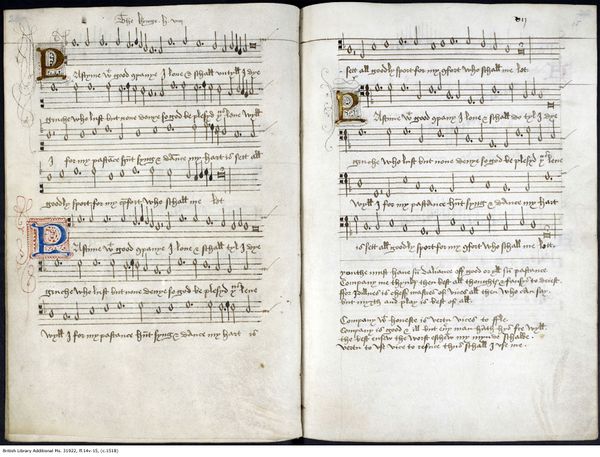 The kynge h viij
Astyme wt good companye I love & schall untyll I dye
gruche who lust but none denye so god be plesyd þus leve wyll
I for my pastance hunt syng & dance my hart is sett all
goodly sport for my comfort who schall me let
Pastyme wt good companye I love & schall tyl I dye
gruche who lust but none denye so god be plesyd þus leve
wyll I for my pastance hunt syng & dance my hart is
sett all goodly sport for my comfort who schall me let
Pastyme wt good company I love & schall do tyl I dye
gruche who lust but none denye so god be plesyd þus leve
wyll I for my pastance hunt syng & dance my hart
is sett all goodly sport for my comfort who schall me let
youthe must have sum daliance off good or yll sum pastance
Company me thynkes then best all thoughts & fansys to deiest
ffor Idillnes is cheff mastres of vices all then who can say
but myrth and play is best of all
Company wt honeste is vertu vices to ffle
Company is good & ill but every man hath hys fre wyll
the best ensew the worst eschew my mynde schalbe
vertu to use vice to refuce thus schall I use me
British Library Additional Ms. 31922, ff.14v-15, (c.1518)